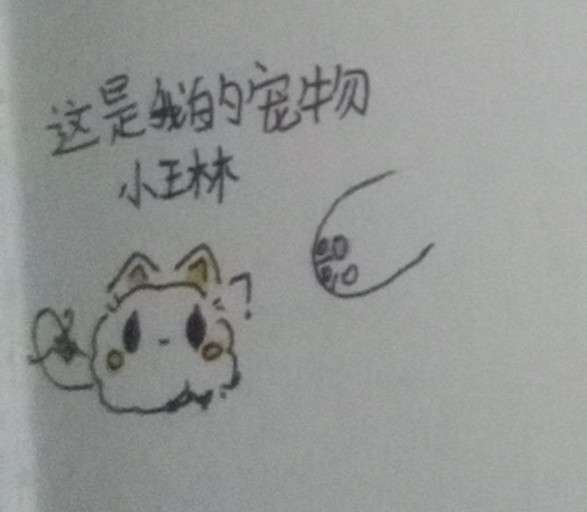 这是我的宠物
小王林
?